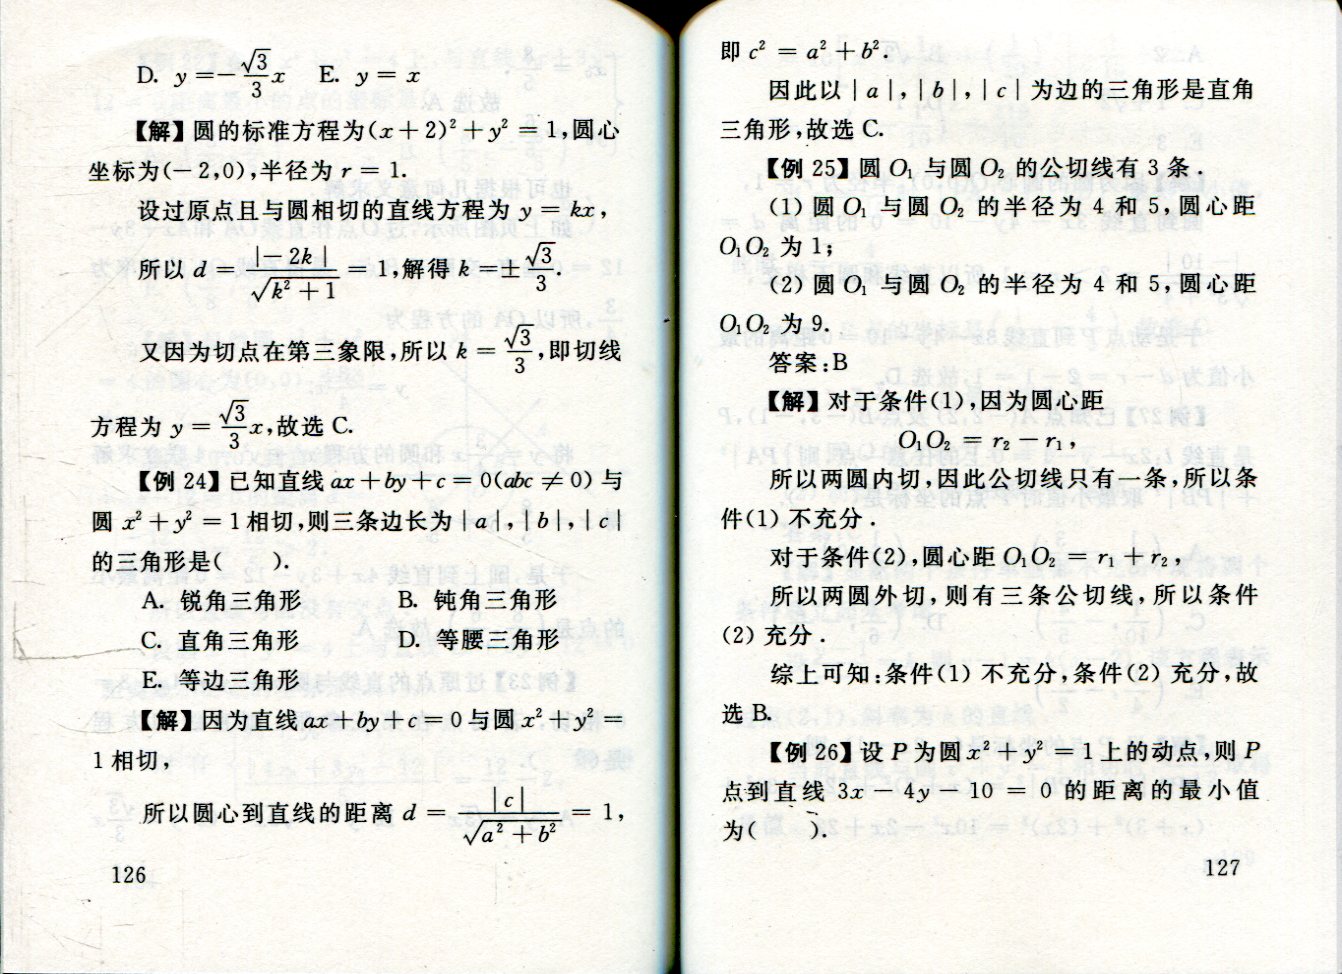 D. y=-√3/3 x  E. y = x
【解】圆的标准方程为(x+2)²+y² = 1,圆心
坐标为(-2,0),半径为 r = 1.
设过原点且与圆相切的直线方程为 y = kx,
所以 d = |-2k|/√(k²+1) = 1,解得 k =± √3/3.
又因为切点在第三象限,所以 k = √3/3,即切线
方程为 y = √3/3 x,故选 C.
【例 24】已知直线 ax+by+c=0(abc ≠ 0) 与
圆 x²+y² = 1 相切,则三条边长为 |a|,|b|,|c|
的三角形是(  ).
A. 锐角三角形  B. 钝角三角形
C. 直角三角形  D. 等腰三角形
E. 等边三角形
【解】因为直线 ax+by+c=0 与圆 x²+y² =
1 相切,
所以圆心到直线的距离 d = |c|/√(a²+b²) = 1,
126
即 c² = a²+b².
因此以 |a|,|b|,|c| 为边的三角形是直角
三角形,故选 C.
【例 25】圆 O₁ 与圆 O₂ 的公切线有 3 条.
(1) 圆 O₁ 与圆 O₂ 的半径为 4 和 5,圆心距
O₁O₂ 为 1;
(2) 圆 O₁ 与圆 O₂ 的半径为 4 和 5,圆心距
O₁O₂ 为 9.
答案:B
【解】对于条件(1),因为圆心距
O₁O₂ = r₂ - r₁,
所以两圆内切,因此公切线只有一条,所以条
件(1) 不充分.
对于条件(2),圆心距 O₁O₂ = r₁ + r₂,
所以两圆外切,则有三条公切线,所以条件
(2) 充分.
综上可知:条件(1) 不充分,条件(2) 充分,故
选 B.
【例 26】设 P 为圆 x² + y² = 1 上的动点,则 P
点到直线 3x - 4y - 10 = 0 的距离的最小值
为(  ).
127